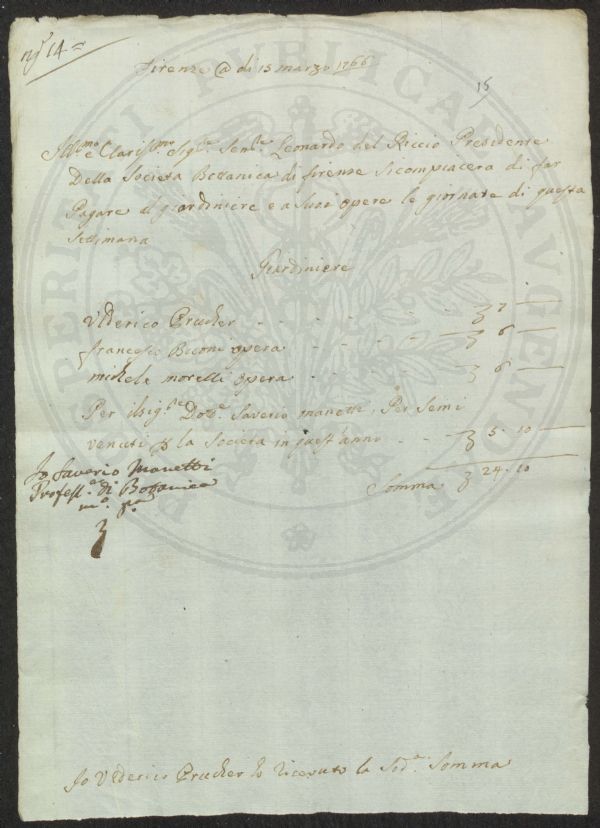 nº 14 =
Firenze @ di 15 marzo 1766
15
Ill.mo e Claris.mo Sig.re Sen.le Leonardo del Riccio Presidente
Della Societa Bottanica di firenze Si compiacera di far
Pagare il giardiniere e a Suoi opere le giornate di questa
Settimana
Giardiniere
Vlderico Prucker - - - - 7
francesco Biconi opera - - - 6
michele morelli opera - - - 6
Per il sig.re Dott.e Saverio manetti, Per Semi
venuti p la Societa in quest'anno - - 5.10
Somma 24.10
Io Saverio Manetti
Profess.e di Bottanica
m.o p.a
Io Vlderico Prucker ho ricevuto la Sod.a Somma
PROSPERITATI PUBLICAE AUGENDAE